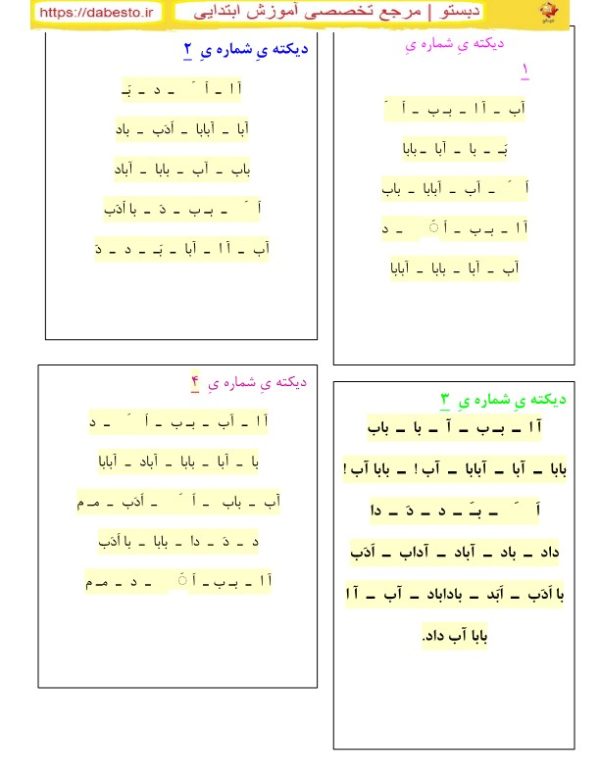 دبستو | مرجع تخصصی آموزش ابتدایی https://dabesto.ir
دیکته یِ شماره یِ
۱
آب ـ آ ا ـ بـ ب ـ اَ ـَ
بَـ ـ با ـ آبا ـ بابا
اَ ـَ ـ آب ـ آبابا ـ باب
آ ا ـ بـ ب ـ اَ ـَ ـ د
آب ـ آبا ـ بابا ـ آبابا
دیکته یِ شماره یِ ۲
آ ا ـ اَ ـَ ـ د ـ بَـ
آبا ـ آبابا ـ اَدَب ـ باد
باب ـ آب ـ بابا ـ آباد
اَ ـَ ـ بـ ب ـ دَ ـ با اَدَب
آب ـ آ ا ـ آبا ـ بَـ ـ د ـ دَ
دیکته یِ شماره یِ ۳
آ ا ـ بـ ب ـ آ ـ با ـ باب
بابا ـ آبا ـ آبابا ـ آب ! ـ بابا آب !
اَ ـَ ـ بـَ ـ د ـ دَ ـ دا
داد ـ باد ـ آباد ـ آداب ـ اَدَب
با اَدَب ـ اَبَد ـ باداباد ـ آب ـ آ ا
بابا آب داد.
دیکته یِ شماره یِ ۴
آ ا ـ آب ـ بـ ب ـ اَ ـَ ـ د
با ـ آبا ـ بابا ـ آباد ـ آبابا
آب ـ باب ـ اَ ـَ ـ اَدَب ـ مـ م
د ـ دَ ـ دا ـ بابا ـ با اَدَب
آ ا ـ بـ ب ـ اَ ـَ ـ د ـ مـ م